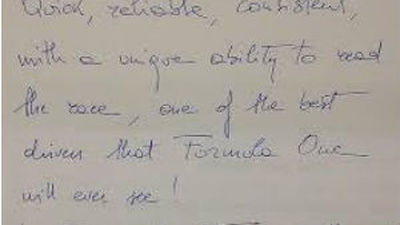 Quick, reliable, consistent,
with a unique ability to read
the race, one of the best
driver that Formula One
will ever see!